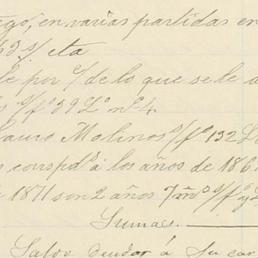 go, en varias partidas en
62 s/ cta
le por c/ de lo que se le a
s/ fº 29 Lº nº 4.
Lauro Molinos s/ fº 132 L
s corrspdª á los años de 186
1871 son 2 años 7 mº s/ fº y L
Sumas.
Saldo deudor á su car